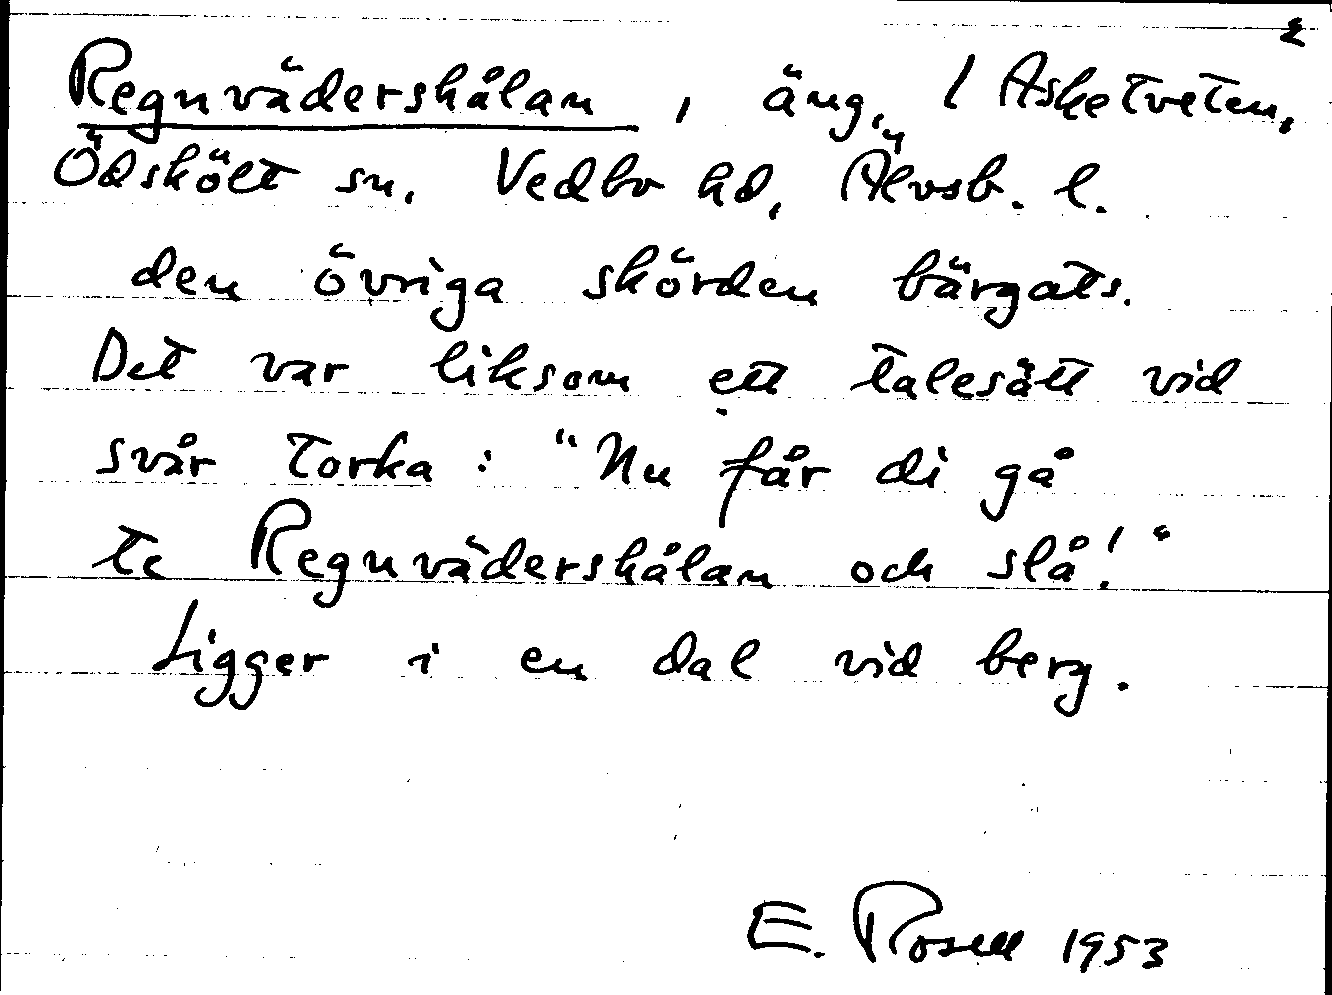 2
Regnvädershålan, äng, 1 Asketveten,
Ödskölt sn. Vedbo hd, Älvsb. l.
den övriga skörden bärgats.
Det var liksom ett talesätt vid
svår torka: "Nu får di gå
te Regnvädershålan och slå!"
Ligger i en dal vid berg.
E. Rosell 1953